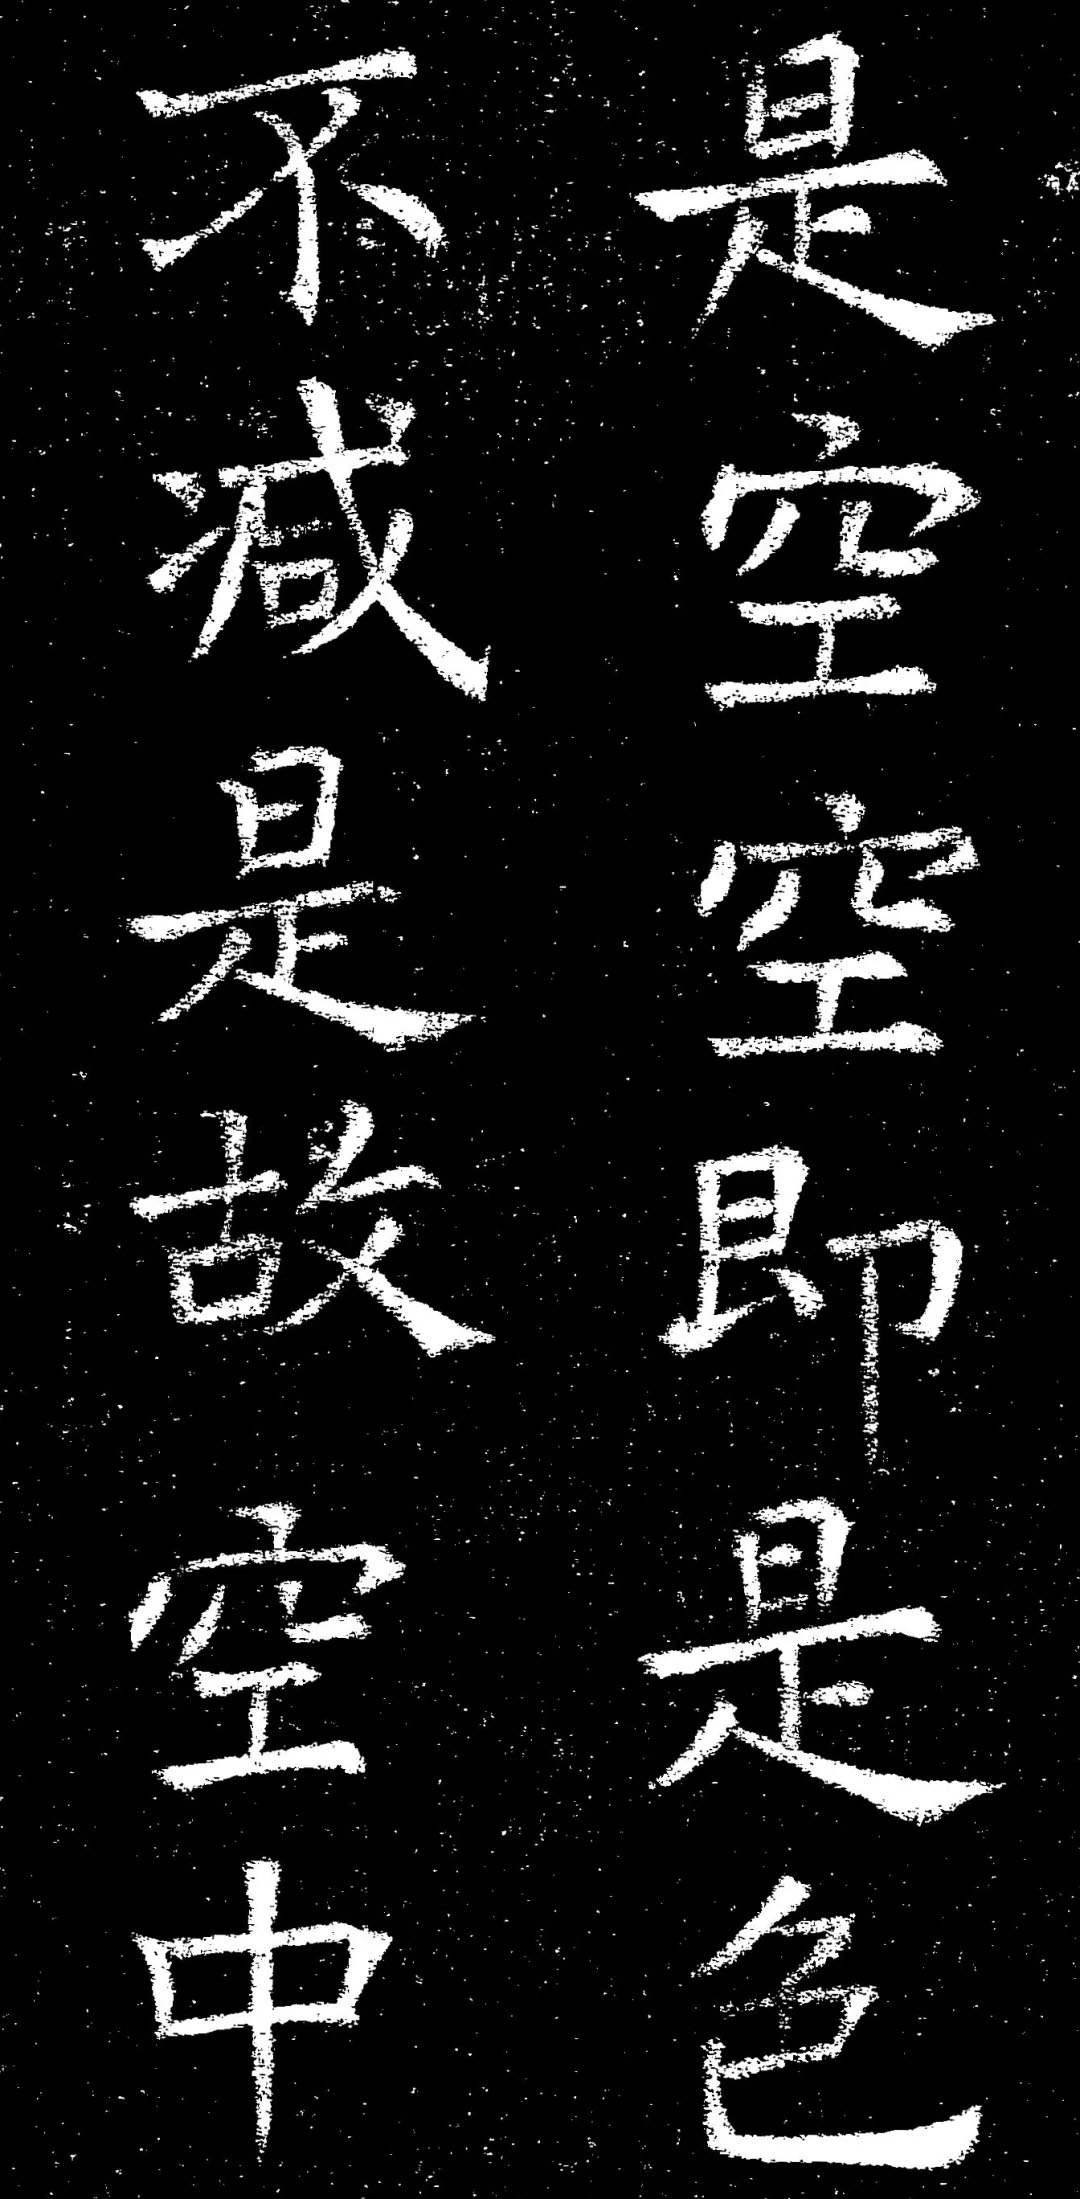 是空空即是色
不减是故空中